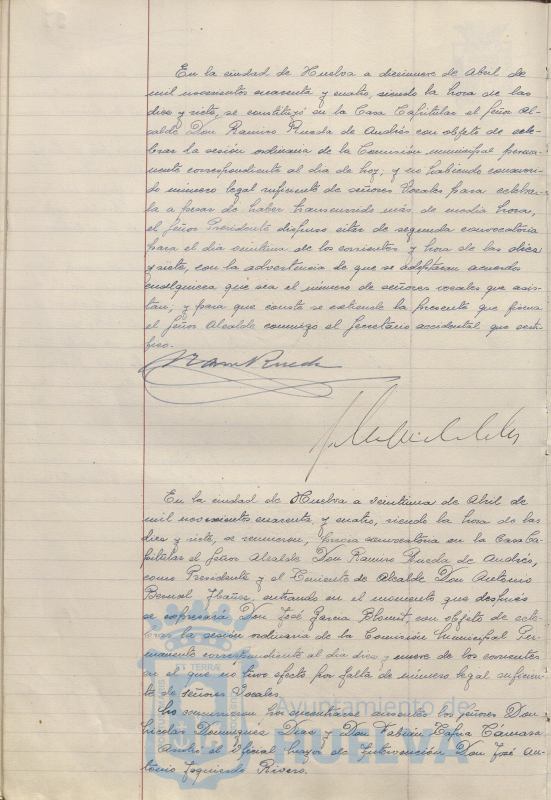 En la ciudad de Huelva a diecinueve de Abril de
mil novecientos cuarenta y cuatro, siendo la hora de las
diez y siete, se constituyó en la Casa Capitular el Señor Al-
calde Don Ramiro Rueda de Andrés con objeto de cele-
brar la sesión ordinaria de la Comisión municipal perma-
nente correspondiente al día de hoy; y no habiendo concurri-
do número legal suficiente de señores Vocales para celebrar-
la a pesar de haber transcurrido más de media hora,
el Señor Presidente dispuso citar de segunda convocatoria
para el día veintiuno de los corrientes y hora de las diez
y siete, con la advertencia de que se adoptarán acuerdos
cualquiera que sea el número de señores vocales que asis-
tan; y para que conste se extiende la presente que firma
el Señor Alcalde conmigo el Secretario accidental que certi-
fico.
En la ciudad de Huelva a veintiuno de Abril de
mil novecientos cuarenta y cuatro, siendo la hora de las
diez y siete, se reunieron, previa convocatoria en la Casa Ca-
pitular el Señor Alcalde Don Ramiro Rueda de Andrés,
como Presidente y el Teniente de Alcalde Don Antonio
Bernal Ibáñez, entrando en el momento que después
se expresará Don José García, con objeto de cele-
brar la sesión ordinaria de la Comisión Municipal Per-
manente correspondiente al día diez y nueve de los corrientes
en el que no tuvo efecto por falta de número legal suficien-
te de señores Vocales.
No concurrieron por encontrarse ausentes los señores Don
Nicolás Domínguez Díaz y Don Fabián Tafra Cámara
Asistió el Oficial Mayor de Intervención Don José An-
tonio Izquierdo Rivero.
ET TERRÆ
Ayuntamiento de
HUELVA